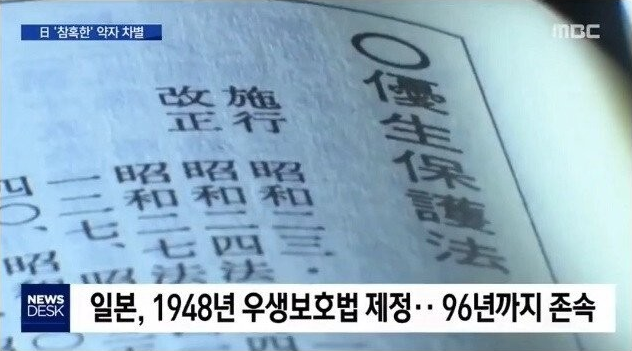 日 '참혹한' 약자 차별
MBC
○優生保護法
施行
改正
昭和二三・
昭和二四法
昭和二七法
一二七、
四〇、
昭
NEWS DESK
일본, 1948년 우생보호법 제정‥ 96년까지 존속